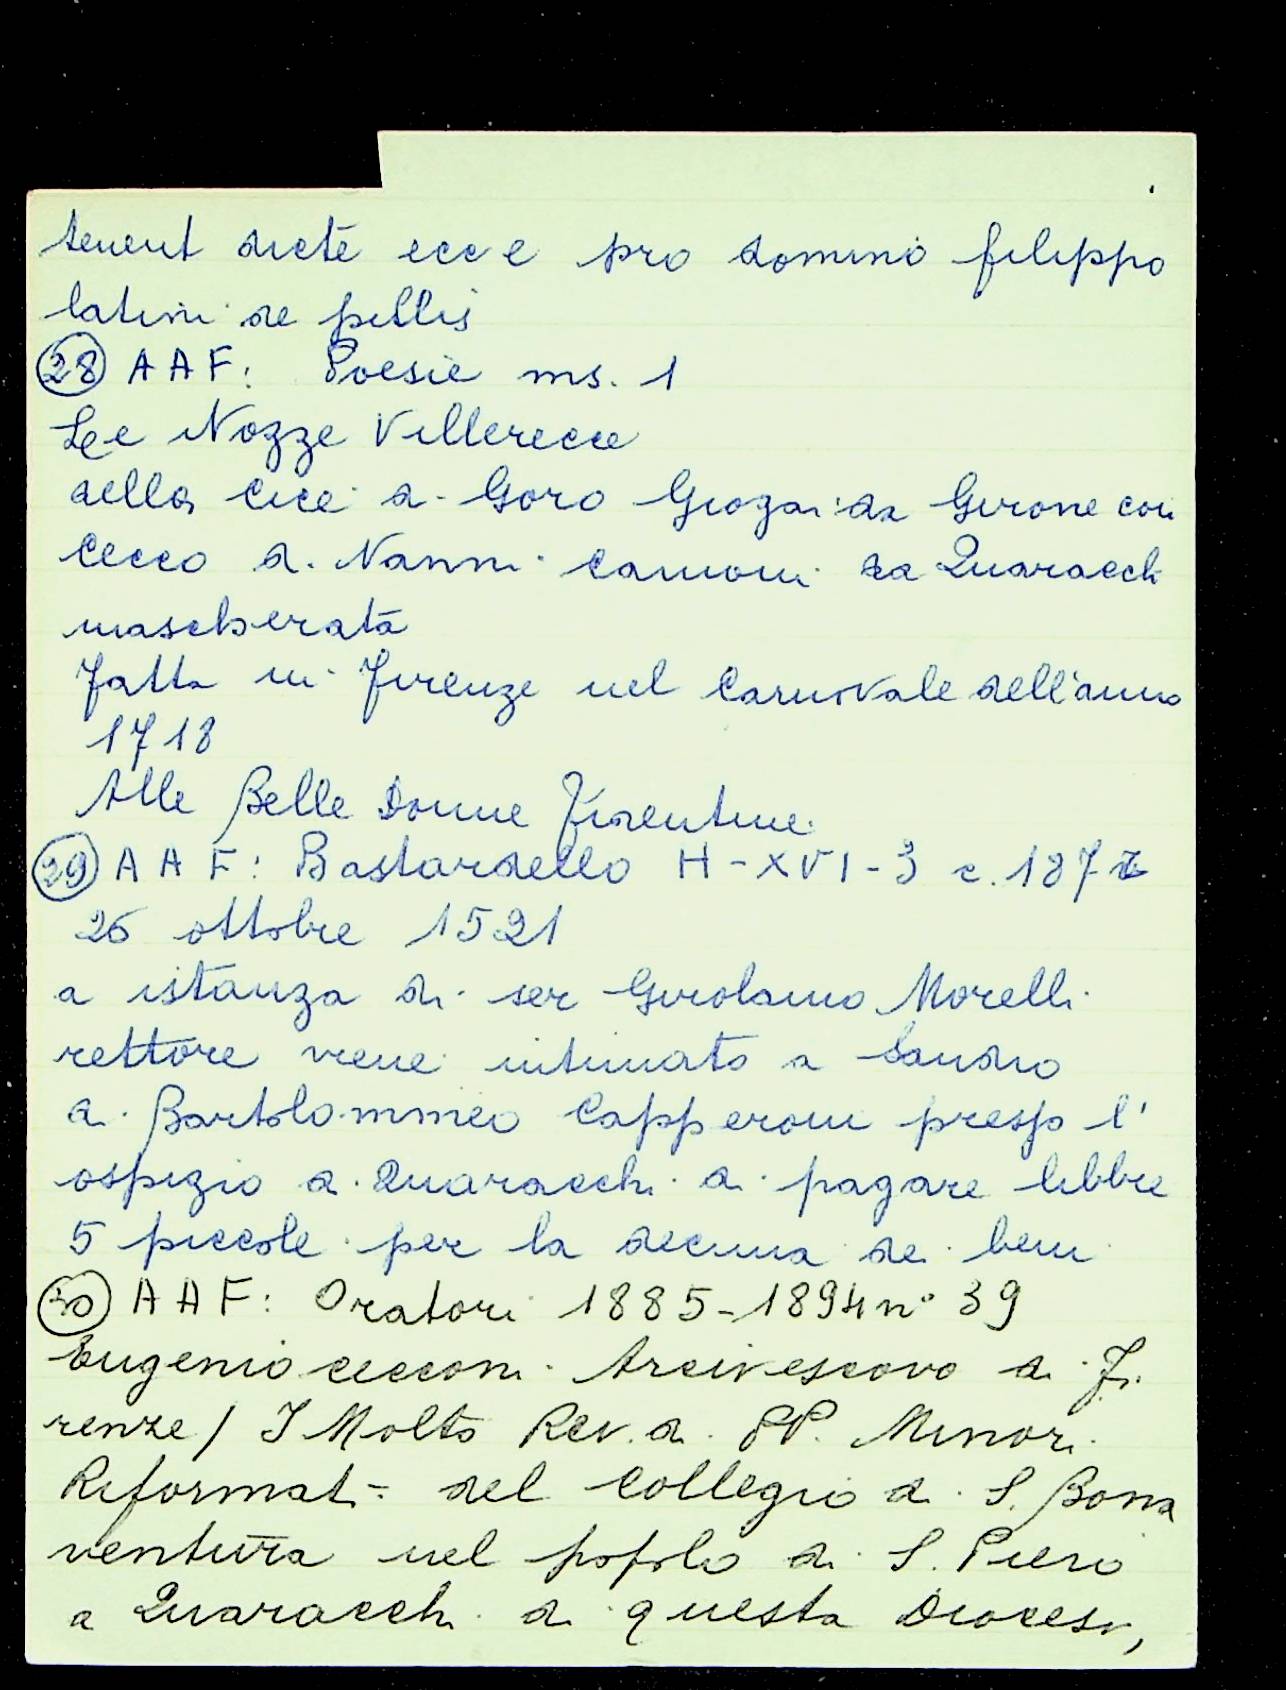 tenent dicte ecc e pro domino filippo
latini de pillis
28 AAF: Poesie ms. 1
Le Nozze Villerecce
della Cice di Goro Giogai da Girone con
Cecco di Nanni Carnioni da Quaracchi
mascherata
Fatta in Firenze nel Carnovale dell'anno
1718
Alle Belle Donne Fiorentine
29 AAF: Bastardello H-XVI-3 c. 187
26 ottobre 1521
a istanza di ser Girolamo Morelli
rettore viene intimato a Sandro
di Bartolommeo Capperoni presso l'
ospizio di Quaracchi di pagare libbre
5 piccole per la decima dei beni
30 AAF: Oratori 1885-1894 n° 39
Eugenio Cecconi Arcivescovo di Fi
renze / I Molto Rev.di PP. Minori
Riformati del Collegio di S. Bona
ventura nel popolo di S. Piero
a Quaracchi di questa Diocesi,